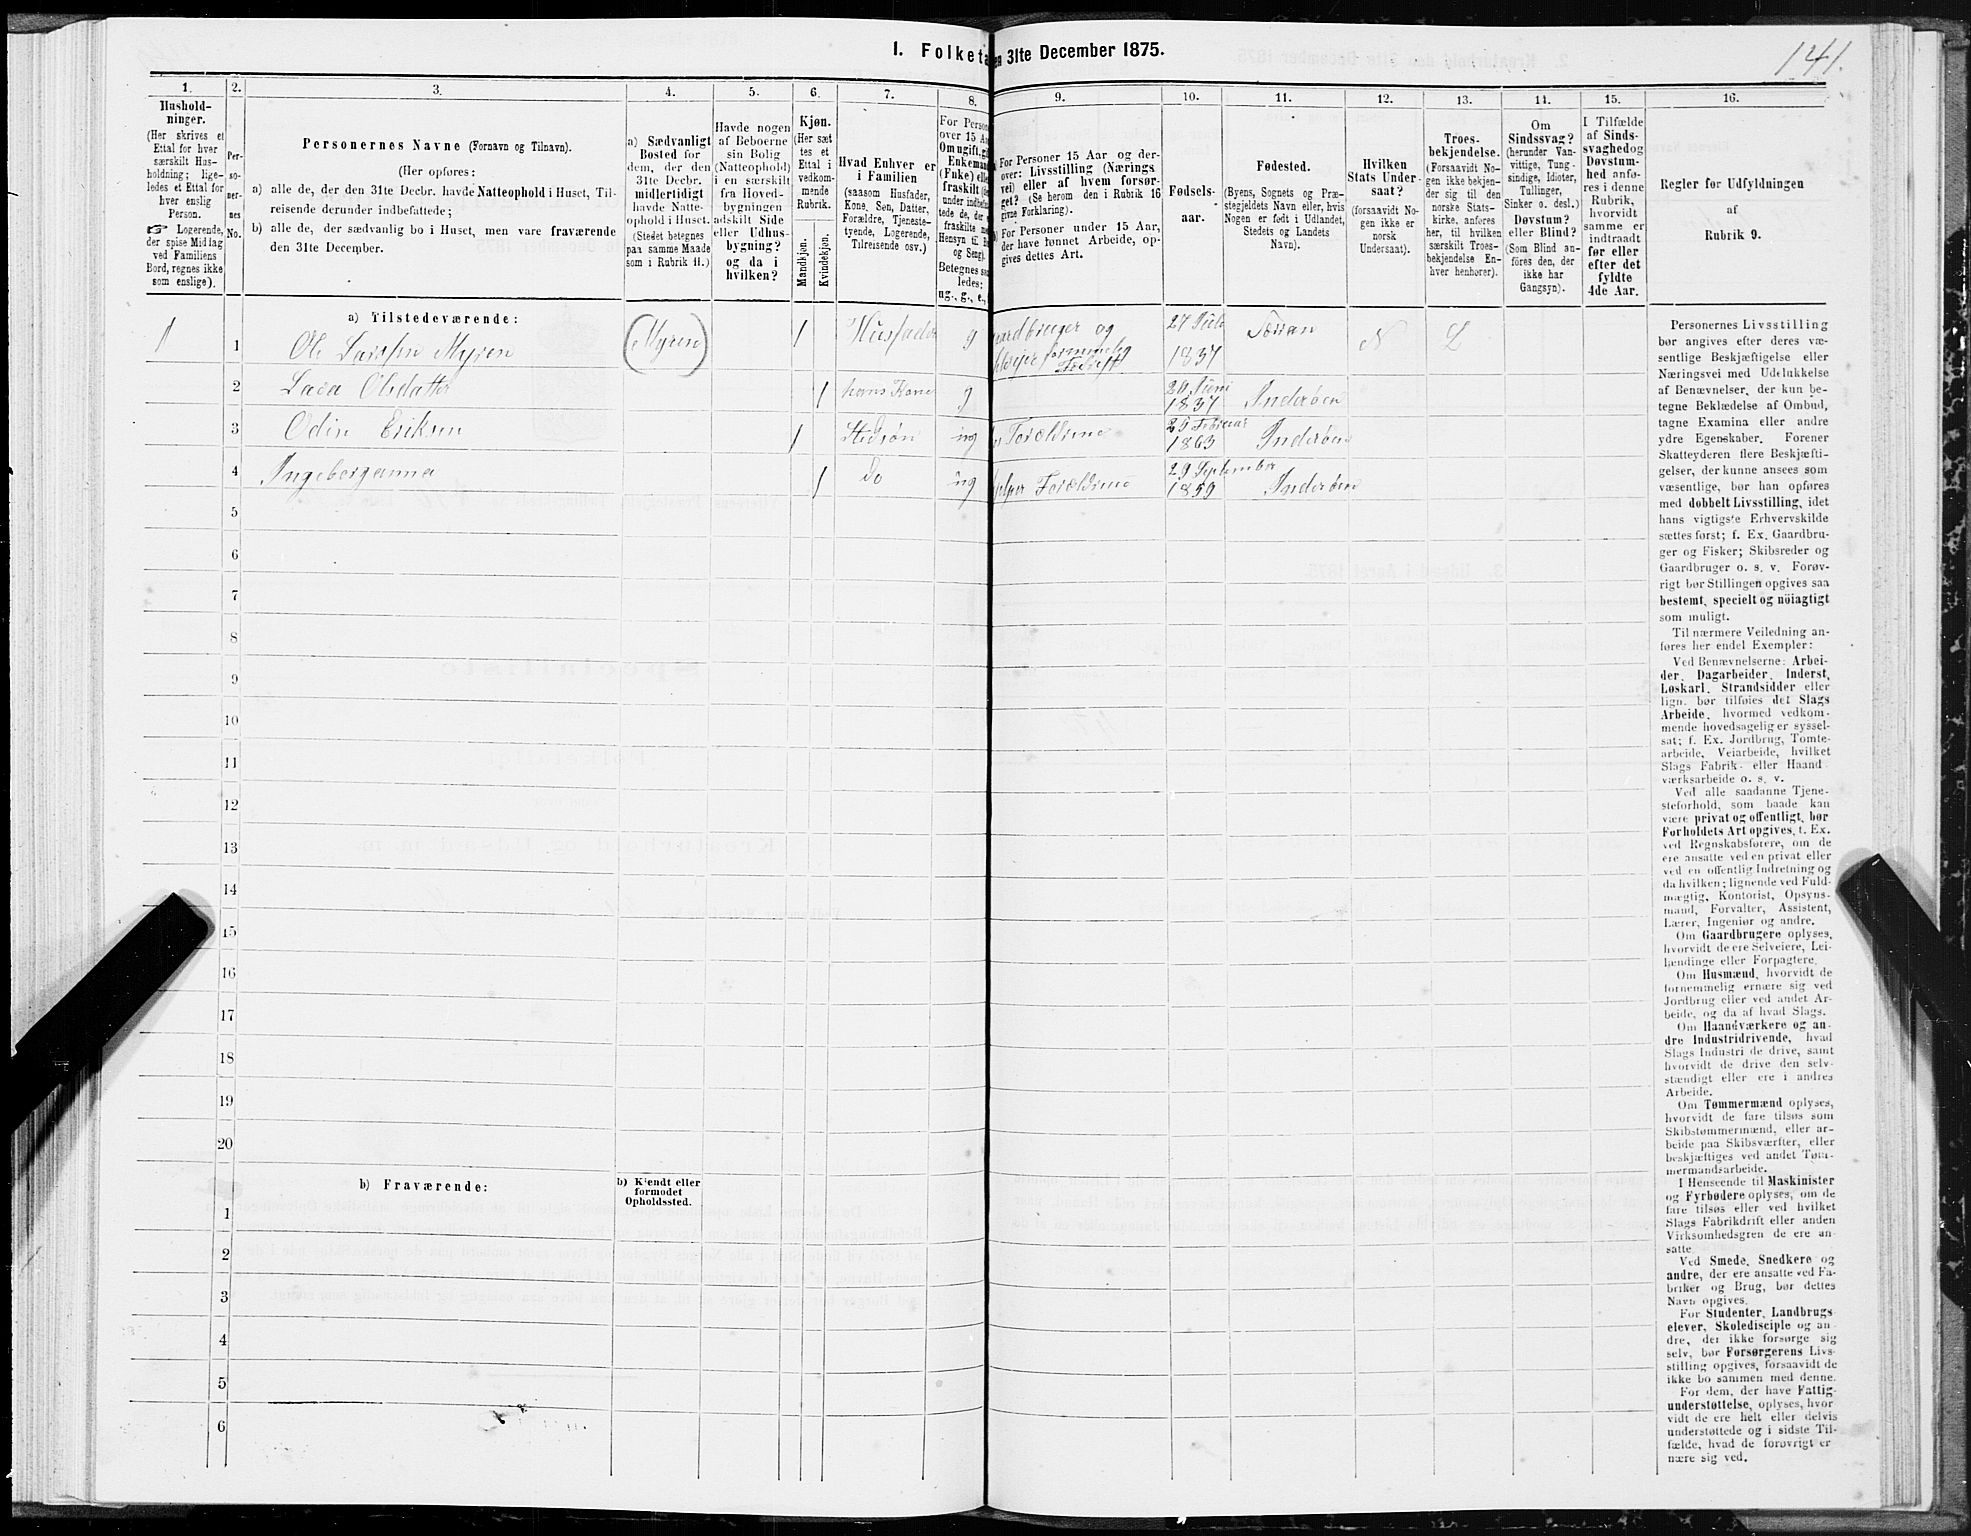 1. Folketa en 31te December 1875.
141.
1.
Hushold-
ninger.
(Her skrives et
Ettal for hver
særskilt Hus-
holdning; lige-
ledes et Ettal for
hver enslig
Person.
☞ Logerende,
der spise Middag
ved Familiens
Bord, regnes ikke
som enslige).
2.
Per-
so-
ner-
nes
No.
3.
Personernes Navne (Fornavn og Tilnavn).
(Her opføres:
a) alle de, der den 31te Decbr. havde Natteophold i Huset, Til-
reisende derunder indbefattede;
b) alle de, der sædvanlig bo i Huset, men vare fraværende
den 31te December.
4.
a) Sædvanligt
Bosted for
dem, der den
31te Decbr.
midlertidigt
havde Natte-
ophold i Huset.
(Stedet betegnes
paa samme Maade
som i Rubrik 11.)
5.
Havde nogen
af Beboerne
sin Bolig
(Natteophold)
i en særskilt
fra Hoved-
bygningen
adskilt Side
eller Udhus-
bygning?
og da i
hvilken?
6.
Kjøn.
(Her sæt
tes et
Ettal i
vedkom-
mende
Rubrik.
Mandkjøn.
Kvindekjøn.
7.
Hvad Enhver er
i Familien
(saasom Husfader,
Kone, Søn, Datter,
Forældre, Tjeneste-
tyende, Logerende,
Tilreisende osv.)
8.
For Person
over 15 Aa
Om ugift, gif
Enkemand
(Enke) elle
fraskilt
under indbefat
tede de, der
fraskilte
Hensyn til B
og Seng).
Betegnes saa
ledes:
ug., g., e.,
9.
For Personer 15 Aar og der-
over: Livsstilling (Nærings
vei) eller af hvem forsør-
get? (Se herom den i Rubrik 16
givne Forklaring).
For Personer under 15 Aar,
der have lønnet Arbeide, op-
gives dettes Art.
10.
Fødsels-
aar.
11.
Fødested.
(Byens, Sognets og Præ-
stegjeldets Navn eller, hvis
Nogen er født i Udlandet,
Stedets og Landets
Navn).
12.
Hvilken
Stats Under-
saat?
(forsaavidt No-
gen ikke er
norsk
Undersaat).
13.
Troes-
bekjendelse.
(Forsaavidt No-
gen ikke bekjen-
der sig til den
norske Stats-
kirke, anføres
her, til hvilken
særskilt Troes-
bekjendelse En-
hver henhører).
14.
Om
Sindssvag?
(herunder Van-
vittige, Tung-
sindige, Idioter,
Tullinger,
Sinker o. desl.)
Døvstum?
eller Blind?
(Som Blind an-
føres den, der
ikke har
Gangsyn).
15.
I Tilfælde
af Sinds-
svaghed og
Døvstum-
hed anfø-
res i denne
Rubrik,
hvorvidt
samme er
indtraadt
før eller
efter det
fyldte
4de Aar.
16.
Regler for Udfyldningen
af
Rubrik 9.
a) Tilstedeværende:
1 1 Ole Larsen Myren (Myren) 1 Husfader g aardbruger og
fornmelig 27 Juli
1837 N L
2 Olsdatter 1 hans Kone g 26 Juni
1837 Inderøen
3 Odin Eriksen 1 Stedsøn ug Forældrene 25 Februar
1863 Inderøen
4 Ingeborganna 1 Do ug hjelper Forældrene 29 September
1859 Inderøen
5
6
7
8
9
10
11
12
13
14
15
16
17
18
19
20
b) Fraværende:
b) Kjendt eller
formodet
Opholdssted.
1
2
3
4
5
6
Personernes Livsstilling
bør angives efter deres væ-
sentlige Beskjæftigelse eller
Næringsvei med Udelukkelse
af Benævnelser, der kun be-
tegne Beklædelse af Ombud,
tagne Examina eller andre
ydre Egenskaber. Forener
Skatteyderen flere Beskjæfti-
gelser, der kunne ansees som
væsentlige, bør han opføres
med dobbelt Livsstilling, idet
hans vigtigste Erhvervskilde
sættes først; f. Ex. Gaardbru-
ger og Fisker; Skibsreder og
Gaardbruger o. s. v. Forøv-
rigt bør Stillingen opgives saa
bestemt, specielt og nöiagtigt
som muligt.
Til nærmere Veiledning an-
føres her endel Exempler:
Ved Benævnelserne: Arbei-
der, Dagarbeider, Inderst,
Løskarl, Strandsidder eller
lign. bør tilføies det Slags
Arbeide, hvormed vedkom-
mende hovedsagelig er syssel-
sat; f. Ex. Jordbrug, Tomte-
arbeide, Veiarbeide, hvilket
Slags Fabrik- eller Haand-
værksarbeide o. s. v.
Ved alle saadanne Tjene-
steforhold, som baade kan
være privat og offentligt, bør
Forholdets Art opgives, f. Ex.
ved Regnskabsførere, om de
ere ansatte ved en privat eller
ved en offentlig Indretning og
da hvilken; lignende ved Fuld-
mægtig, Kontorist, Opsyns-
mand, Forvalter, Assistent,
Lærer, Ingeniør og andre.
Om Gaardbrugere oplyses,
hvorvidt de ere Selveiere, Lei-
lændinge eller Forpagtere.
Om Husmænd, hvorvidt de
fornemmelig ernære sig ved
Jordbrug eller ved andet Ar-
beide, og da af hvad Slags.
Om Haandværkere og an-
dre Industridrivende, hvad
Slags Industri de drive, samt
hvorvidt de drive den selv-
stændigt eller ere i andres
Arbeide.
Om Tømmermænd oplyses,
hvorvidt de fare tilsøs som
Skibstømmermænd, eller ar-
beide paa Skibsværfter, eller
beskjæftiges ved andet Tøm-
mermandsarbeide.
I Henseende til Maskinister
og Fyrbødere oplyses, om de
fare tilsøs eller ved hvilket
Slags Fabrikdrift eller anden
Virksomhedsgren de ere an-
satte.
Ved Smede, Snedkere og
andre, der ere ansatte ved Fa-
briker og Brug, bør dettes
Navn opgives.
For Studenter, Landbrugs
elever, Skoledisciple og an-
dre, der ikke forsørge sig
selv, bør Forsørgerens Livs-
stilling opgives, forsaavidt de
ikke bo sammen med denne.
For dem, der have Fattig-
understøttelse, oplyses, hvor
vidt de ere helt eller delvis
understøttede og i sidste Til-
fælde, hvad de forøvrigt er
nære sig ved.